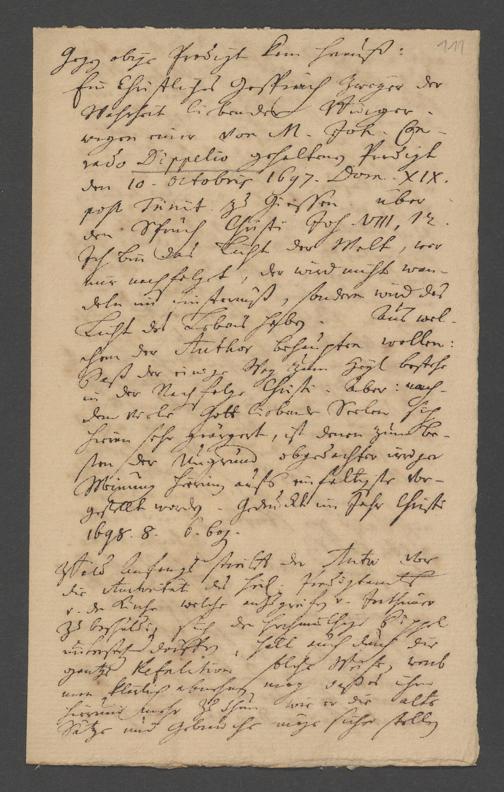 111
Gegen obige Predigt kam heraus:
Ein Christliches Gespräch zweyer der
Wahrheit liebenden Bürger
wegen einer von M. Joh. Con-
rado Dippelio gehaltenen Predigt
den 10. Octobris 1697. Dom. XIX.
post Trinit. zu Giessen über
den Spruch Christi Joh. VIII, 12.
Ich bin das Licht der Welt, wer
mir nachfolget, der wird nicht wan-
deln im Finsternüß, sondern wird das
Licht des Lebens haben. Aus wel-
chem der Author behaupten wollen:
Daß der einige Weg zum Heyl bestehe
in der Nachfolge Christi. Aber: nach-
dem viele Gott liebende Seelen sich
hieran sehr geärgert, ist denen zum be-
sten der Ungrund obgedachter irriger
Meinung hierin aufs einfältigste vor-
gestellt worden. Gedruckt im Jahr Christi
1698. 8. 6. bog.
Anfangs streicht der Autor
die Autorität des Heil. Predigtamts
v. der Kirche welche
zu der hochmüthige Dippel
, hat auch durch die
gantze Refutation
man klärlich mag daß es ihm
hierum mehr zu thun, wie er die alte
Sätze und Gebräuche möge sicher stellen